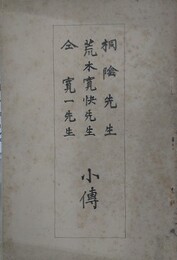 桐陰先生
荒木寛快先生
仝 寛一先生
小傳